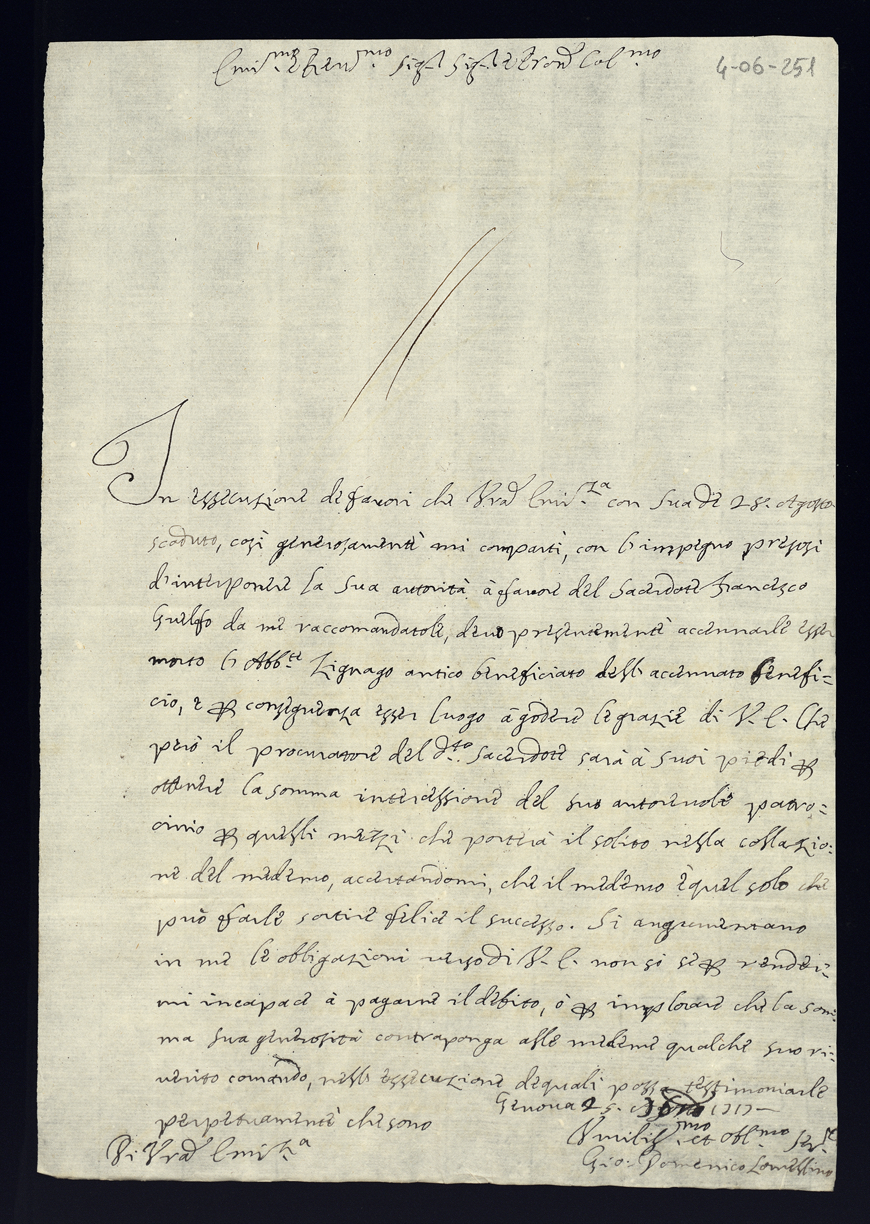 Emi.mo e Rev.mo Sig.r Sig.r e Pron Col.mo
4-06-251
In essecuzione de favori che Vra Emi.za con Sua de 28. Agosto
scaduto, così generosamente mi compartì, con l'impegno presosi
d'interporre la sua autorità à favore del Sacerdote Francesco
Guelfo da me raccomandatole, devo presentemente accennarle esser
morto l'Abb.te Lignago antico beneficiato dell accennato benefi=
cio, e per conseguenza esser luogo à godere le grazie di V. E. Che
però il procuratore del d.to Sacerdote sarà à suoi piedi per
ottenere la somma intercessione del suo autorevole patro=
cinio per quelli mezzi che porterà il solito nella collazio=
ne del medemo, accertandomi, che il medemo è quel solo che
può farle sortire felice il successo. Si augumentano
in me le obligazioni verso di V. E. non sò se per render=
mi incapace à pagarne il debito, ò per implorare che la som=
ma sua generosità contraponga alle medeme qualche suo ri=
verito comando, nell essecuzione de quali possa testimoniarle
perpetuamente che sono
Genova 25. 1717
Di Vra Emi.za
Umiliss.mo et obl.mo Ser.re
Gio: Domenico Lomellino